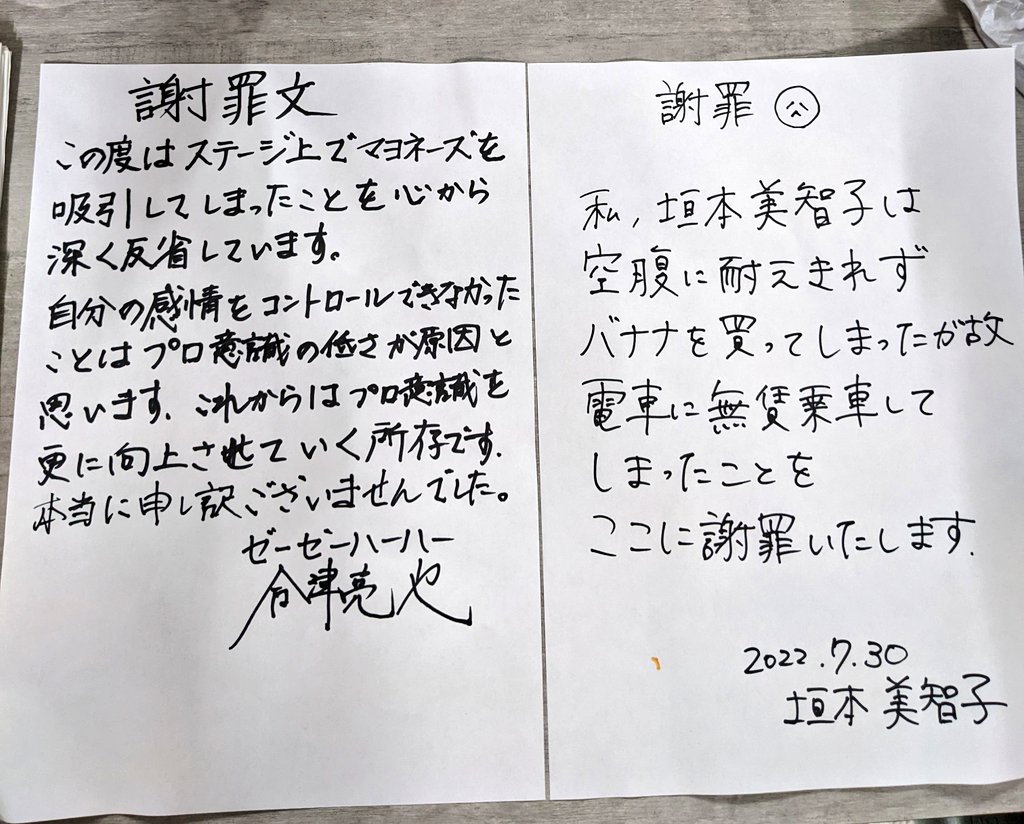 謝罪文
この度はステージ上でマヨネーズを
吸引してしまったことを心から
深く反省しています。
自分の感情をコントロールできなかった
ことはプロ意識の低さが原因と
思います。これからはプロ意識を
更に向上させていく所存です。
本当に申し訳ございませんでした。
ゼーゼーハーハー
會津亮也
謝罪
私、垣本美智子は
空腹に耐えきれず
バナナを買ってしまったが故
電車に無賃乗車して
しまったことを
ここに謝罪いたします。
2022.7.30
垣本 美智子